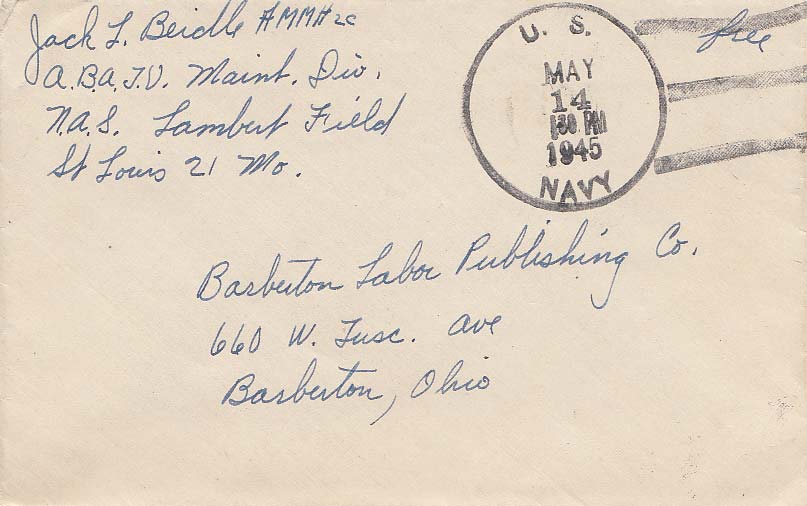 Jack L. Beidle AMMH 2c
A.B.A.T.U. Maint. Div.
N.A.S. Lambert Field
St Louis 21 Mo.
U. S.
MAY
14
1 30 PM
1945
NAVY
free
Barberton Labor Publishing Co.
660 W. Tusc. Ave
Barberton, Ohio